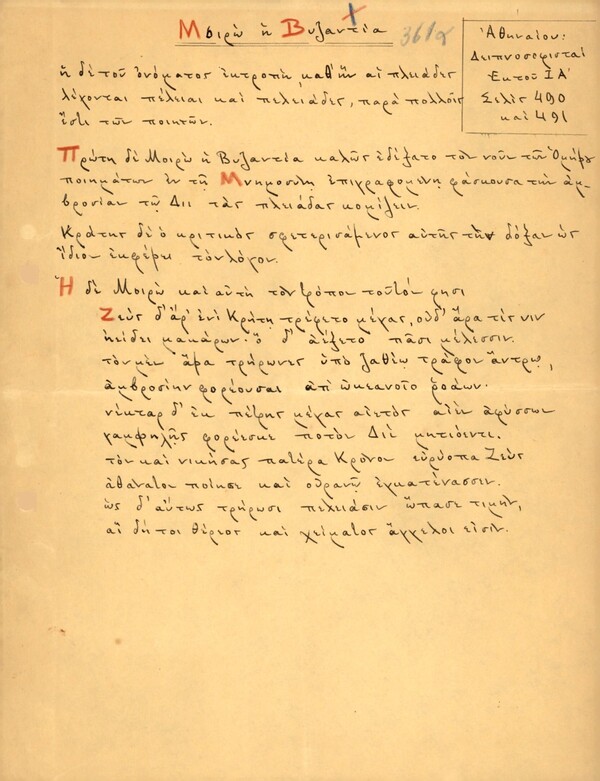 Μοιρὼ ἡ Βυζαντία
361α
Ἀθηναίου:
Δειπνοσοφισταί
Ἑκτοῦ ΙΑ΄
Σελὶς 490
καὶ 491
ἡ δὲ τοῦ ὀνόματος ἐκτροπή, καθ' ἣν αἱ πλειάδες
λέγονται πέλειαι καὶ πελειάδες, παρὰ πολλοῖς
ἔστι τῶν ποιητῶν.
Πρώτη δὲ Μοιρὼ ἡ Βυζαντία καλῶς ἐδέξατο τὸν νοῦν τῶν Ὁμήρου
ποιημάτων ἐν τῇ Μνημοσύνῃ ἐπιγραφομένῃ φάσκουσα τὴν ἀμ-
βροσίαν τῷ Διὶ τὰς πλειάδας κομίζειν.
Κράτης δὲ ὁ κριτικὸς σφετερισάμενος αὐτῆς τὴν δόξαν ὡς
ἴδιον ἐκφέρει τὸν λόγον.
Ἡ δὲ Μοιρὼ καὶ αὐτὴ τὸν τρόπον τοῦτόν φησι
Ζεὺς δ' ἄρ' ἐνὶ Κρήτῃ τρέφετο μέγας, οὐδ' ἄρα τίς νιν
ἠείδει μακάρων· ὁ δ' ἀέξετο πᾶσι μέλεσσιν.
τὸν μὲν ἄρα τρήρωνες ὑπὸ ζαθέῳ τράφον ἄντρῳ,
ἀμβροσίην φορέουσαι ἀπ' ὠκεανοῖο ῥοάων·
νέκταρ δ' ἐκ πέτρης μέγας αἰετὸς αἰὲν ἀφύσσων
γαμφηλῇς φορέεσκε ποτὸν Διῒ μητιόεντι.
τὸν καὶ νικήσας πατέρα Κρόνον εὐρύοπα Ζεὺς
ἀθάνατον ποίησε καὶ οὐρανῷ ἐγκατένασσιν.
ὣς δ' αὔτως τρήρωσι πελειάσιν ὤπασε τιμήν,
αἳ δή τοι θέρεος καὶ χείματος ἄγγελοί εἰσιν.